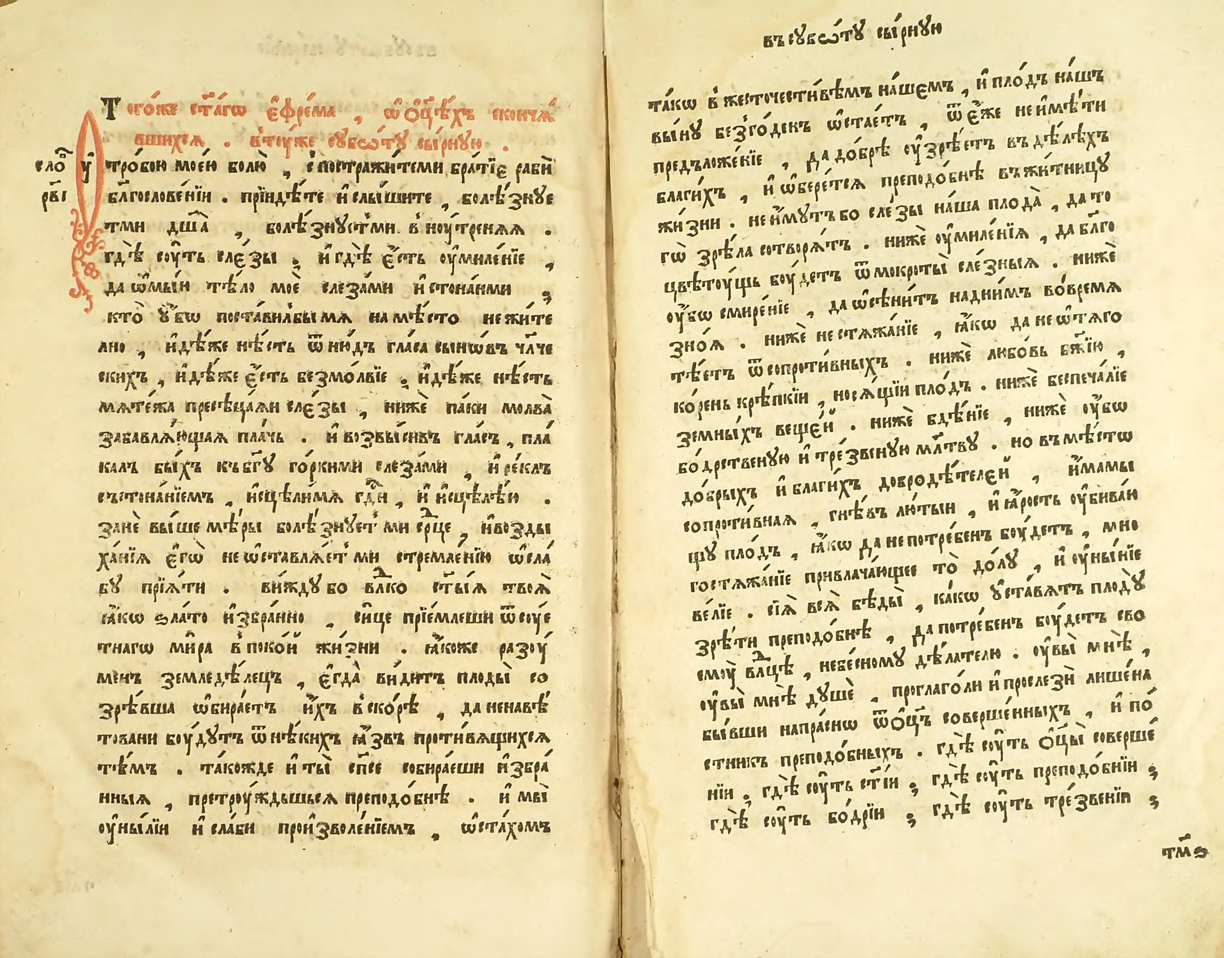 Тогѡ́же ст҃а́гѡ є҆фре́ма , ѡ҆ ѻ҆ц҃ѣ́хъ сконча́
вшихсѧ . втꙋ́же сꙋббѡ́тꙋ сы́рнꙋю .
сло́
рв҃і
У҆тро́бою мое́ю болю̀ , спостражи́теми бра́тїє рабѝ
бл҃гослове́нїи . прїиди́те и҆ слы́шите , болѣ́знꙋе
тми дш҃а̀ , болѣ́знꙋетми внꙋ́тренѧѧ .
гдѣ̀ сꙋ́ть сле́зы ; и҆ гдѣ̀ є҆́сть ѹ҆миле́нїе ,
да ѡ҆мы́и тѣ́ло моѐ слеза́ми и҆ стона́нми ;
кто̀ ѹ҆́бѡ поста́вилъбы мѧ̀ на мѣ́сто нежи́те
лно , и҆дѣ́же нѣ́сть ѿню́дъ гла́са сынѡ́въ чл҃че
скихъ , и҆дѣ́же є҆́сть безмо́лвїе ; и҆дѣ́же нѣ́сть
мѧте́жа пресѣца́ѧи сле́зы , нижѐ па́ки молва̀
забавлѧ́ющаѧ пла́чь . и҆ возвы́сивъ гла́съ , пла́
калъ бы́хъ къ бг҃ꙋ го́ркими слеза́ми , и҆ ре́клъ
съ стона́нїемъ , и҆сцѣли́мѧ гд҃и , и҆ и҆сцѣлѣ́ю .
занѐ вы́ше мѣ́ры болѣ́знꙋетъ ми се́рце , и҆ возды
ха́нїѧ є҆гѡ̀ не ѡ҆ставлѧ́етъ ми стремле́нїю ѡ҆сла́
бꙋ прїѧ́ти . ви́ждꙋ бо влⷣко ст҃ы́ѧ твоѧ̀
ꙗ҆́кѡ зла́то и҆збра́нно , си́це прїе́млеши ѿ сꙋе
тнагѡ ми́ра впоко́й жи́зни . ꙗ҆́коже разꙋ́
менъ земледѣ́лецъ , є҆гда̀ ви́дитъ плоды̀ со
зрѣ́вша ѡ҆бира́етъ и҆́хъ вско́рѣ , да не навѣ́
товани бꙋ́дꙋтъ ѿ нѣ́кихъ ꙗ҆́звъ проти́вѧщихсѧ
тѣ́мъ . та́кожде и҆ ты̀ сп҃се собира́еши и҆збра́
нныѧ , претрꙋ́ждьшьсѧ преподо́бнѣ . и҆ мы̀
ѹ҆ны́лїи и҆ сла́би произволе́нїемъ , ѡ҆ста́хомъ
въ сꙋббѡ́тꙋ сы́рнꙋю
та́кѡ вжесточести́вѣмъ на́шемъ , и҆ пло́дъ на́шъ
вы́нꙋ безго́денъ ѡ҆ста́етъ , ѿ є҆́же не и҆мѣ́ти
предложе́нїе , да до́брѣ ѹ҆зрѣ́етъ въ дѣ́лѣхъ
благи́хъ , и҆ ѡ҆бере́тсѧ преподо́бнѣ въ жи́тницꙋ
жи́зни . не и҆́мꙋтъ бо сле́зы на́ша плода̀ , да то
гѡ̀ зрѣ́ла сотворѧ́тъ . нижѐ ѹ҆миле́нїѧ , да бл҃го
цвѣтꙋ́щь бꙋ́детъ ѿ мокроты̀ сле́зныѧ . нижѐ
ѹ҆́бѡ смире́нїе , да ѡ҆сѣни́тъ над ни́мъ во вре́мѧ
зно́ѧ . нижѐ нестѧжа́нїе , ꙗ҆́кѡ да не ѡ҆тѧго
тѣ́етъ ѿ сопроти́вныхъ . нижѐ любо́вь бж҃їю ,
ко́рень крѣ́пкїи , носѧ́щїи пло́дъ . нижѐ беспеча́лїе
земны́хъ веще́й . нижѐ бдѣ́нїе , нижѐ ѹ҆́бѡ
бо́дрственꙋю и҆ тре́звенꙋю мл҃твꙋ . но въ мѣ́стѡ
до́брыхъ и҆ благи́хъ добродѣ́телей , и҆́мамы
сопроти́внаѧ , гнѣ́въ лю́тыи , и҆ ꙗ҆́рость ѹ҆бива́ю
щꙋ пло́дъ , ꙗ҆́кѡ да не потре́бенъ бꙋ́детъ , мно
гостѧжа́нїе привлача́ющее то̀ до́лꙋ , и҆ ѹ҆ны́нїе
ве́лїе . сїѧ̀ всѧ̀ бѣды̀ , ка́кѡ ѹ҆ста́вѧтъ плодꙋ̀
зрѣ́ти преподо́бнѣ , да потре́бенъ бꙋ́детъ сво
емꙋ̀ влⷣцѣ , небе́сномꙋ дѣ́лателю . ѹ҆вы̀ мнѣ̀ ,
ѹ҆вы̀ мнѣ̀ дꙋшѐ , проглаго́ли и҆ прослезѝ лише́на
бы́вши напра́снѡ ѿ ѻ҆ц҃ъ соверше́нныхъ , и҆ по́
стникъ преподо́бныхъ . гдѣ̀ сꙋ́ть ѻ҆ц҃ы̀ соверше́
нїи , гдѣ̀ сꙋ́ть ст҃і́и ; гдѣ̀ сꙋ́ть преподо́бнїи ;
гдѣ̀ сꙋ́ть бо́дрїи ; гдѣ̀ сꙋ́ть тре́звенїи ;
тм҃ѕ